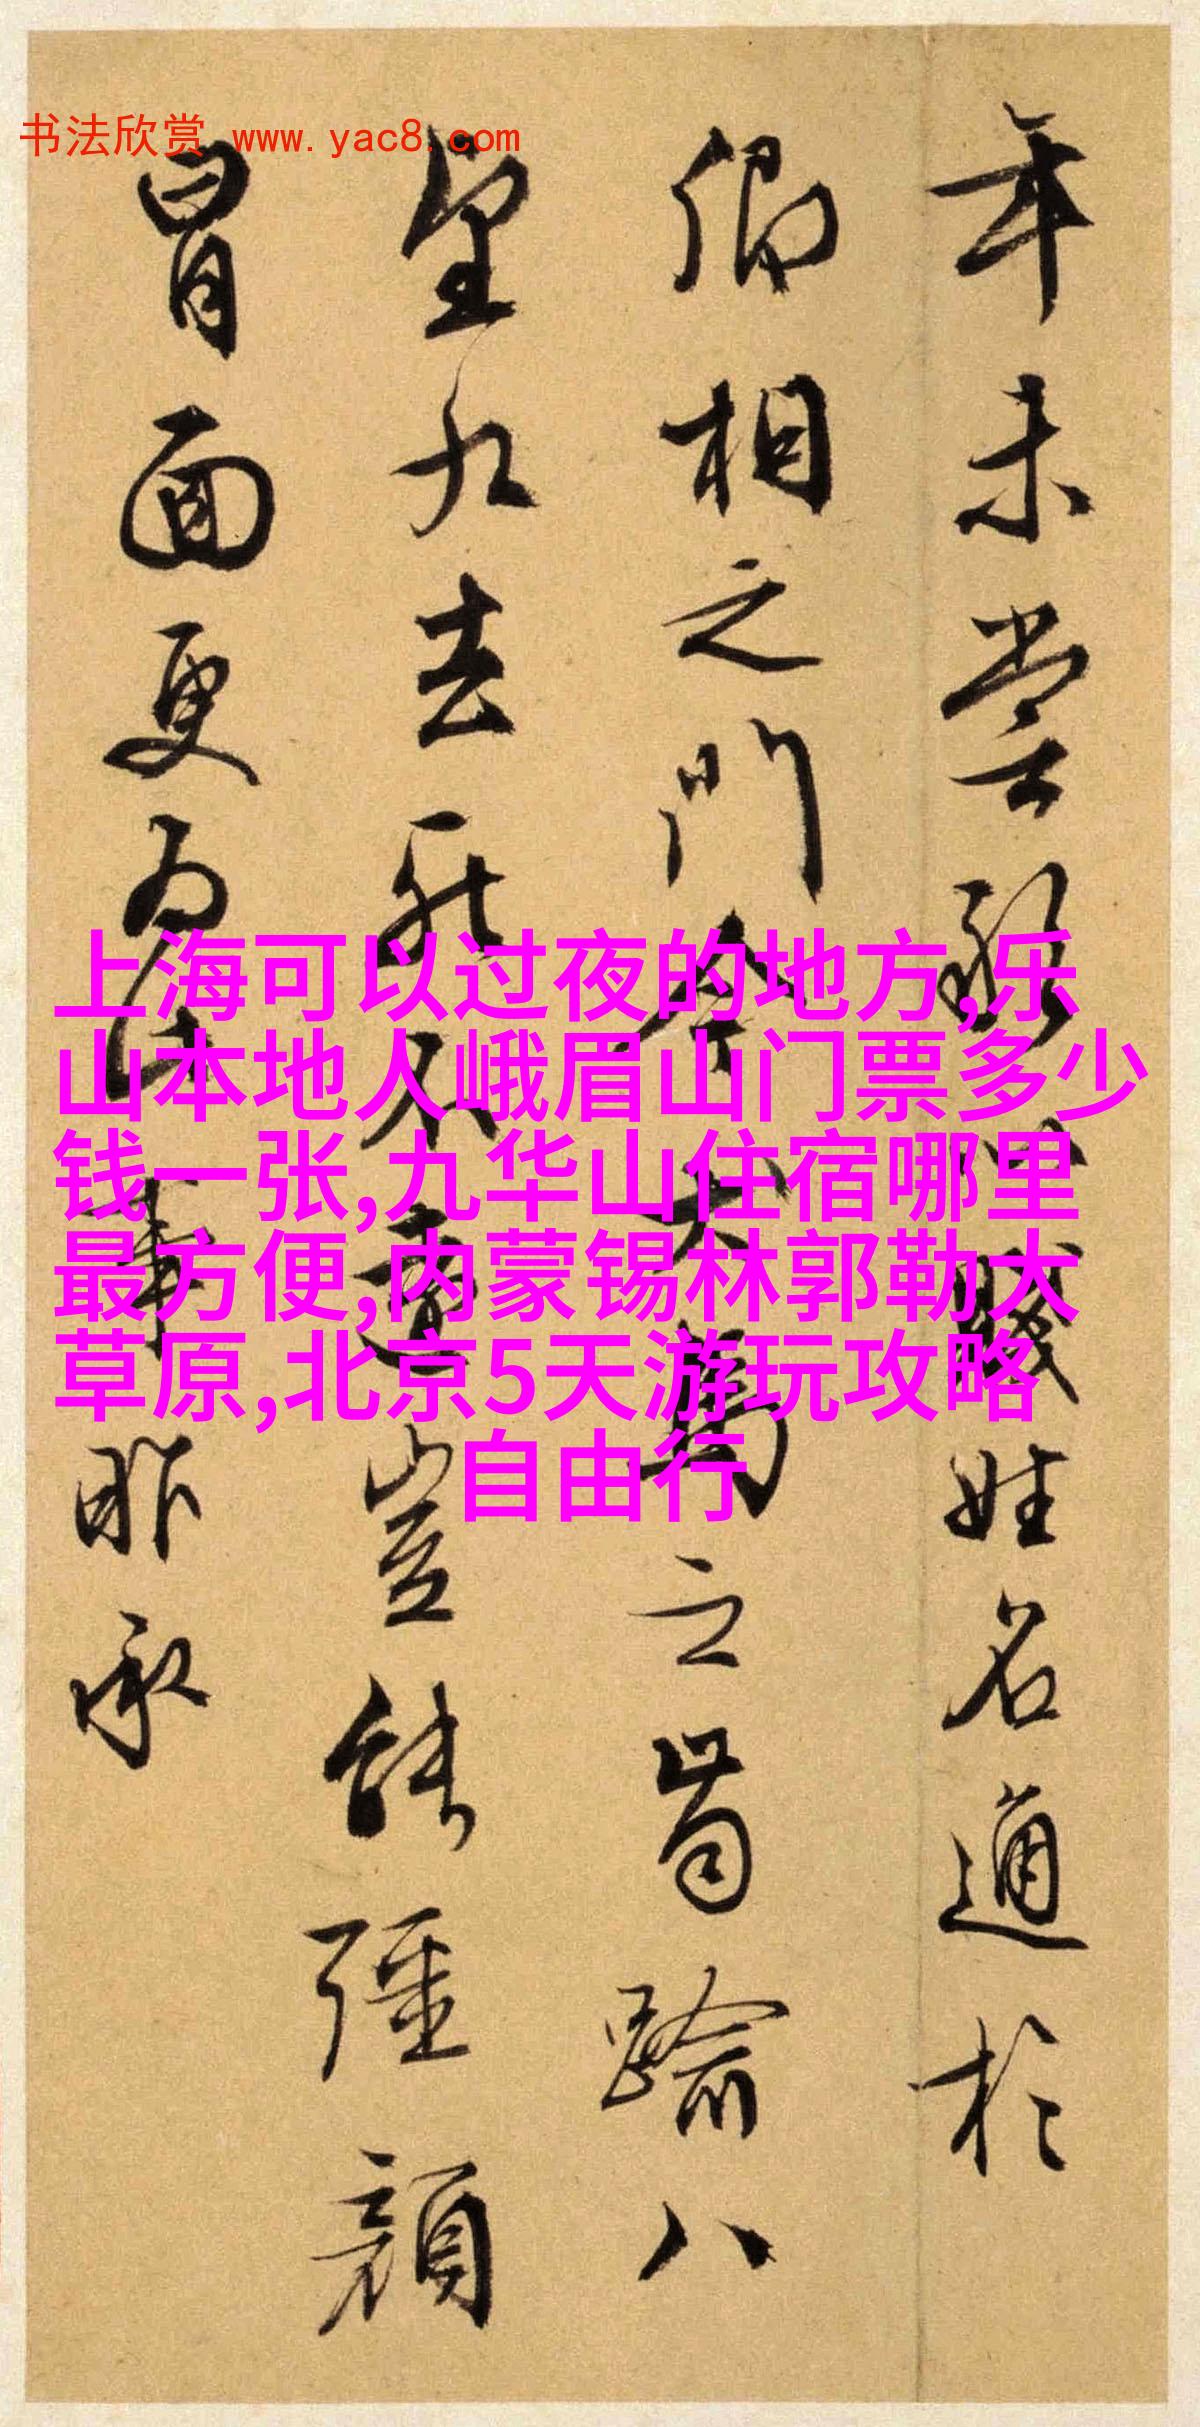 书法欣赏 www.yac8.com
年未尝敢以贱姓名通於
卿相之門今犬馬之齒踰八
望九去死不遠豈能彊顏
冒面更为
事昨承
上海可以过夜的地方,乐
山本地人峨眉山门票多少
钱一张,九华山住宿哪里
最方便,内蒙锡林郭勒大
草原,北京5天游玩攻略
自由行